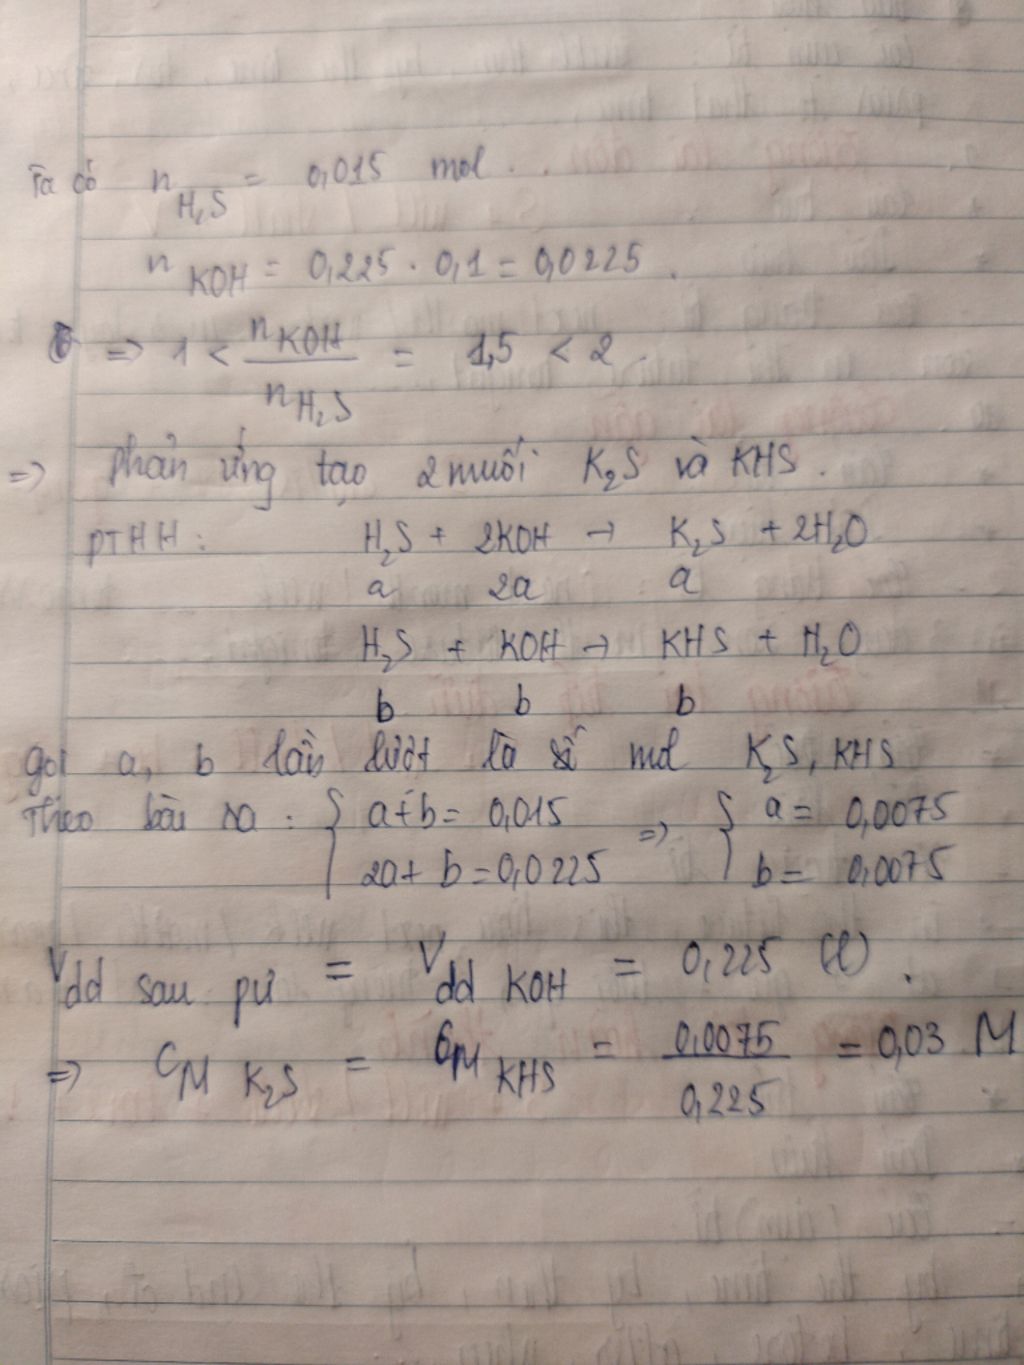 Ta có n H₂S = 0,015 mol.
n KOH = 0,225 . 0,1 = 0,0225.
=> 1 < n KOH / n H₂S = 1,5 < 2.
=> phản ứng tạo 2 muối K₂S và KHS.
PTHH: H₂S + 2KOH → K₂S + 2H₂O
a 2a a
H₂S + KOH → KHS + H₂O
b b b
gọi a, b lần lượt là số mol K₂S, KHS
Theo bài ra: { a+b = 0,015 => { a = 0,0075
2a + b = 0,0225 b = 0,0075
V dd sau pư = V dd KOH = 0,225 (l).
=> C M K₂S = C M KHS = 0,0075 / 0,225 = 0,03 M